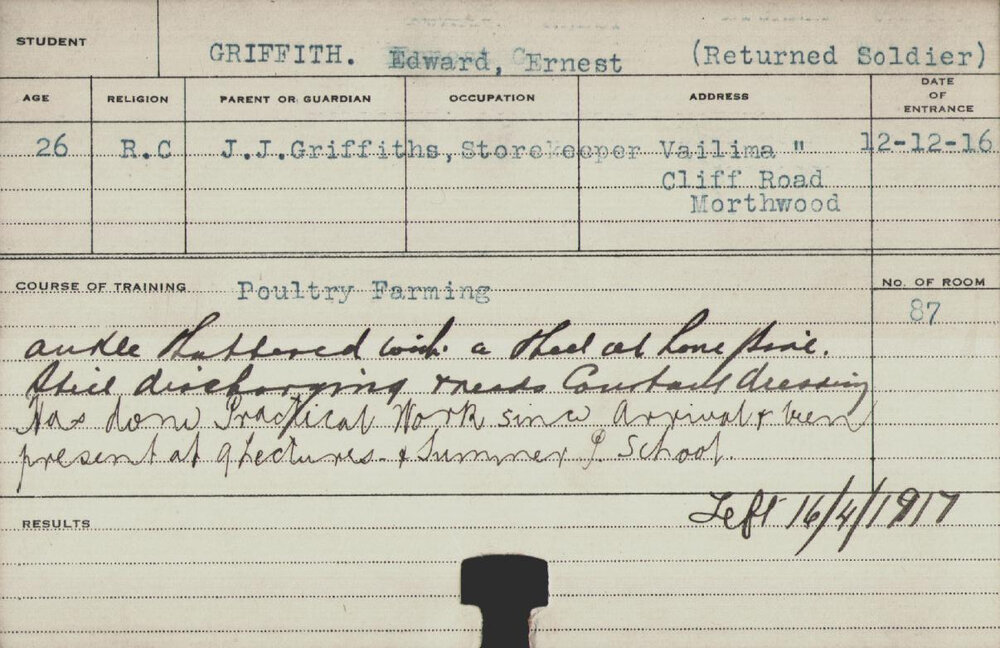 STUDENT GRIFFITH. Edward, Ernest (Returned Soldier)
AGE RELIGION PARENT OR GUARDIAN OCCUPATION ADDRESS DATE OF ENTRANCE
26 R.C J.J.Griffiths, Storekeeper Vailima " 12-12-16
Cliff Road
Morthwood
COURSE OF TRAINING Poultry Farming No. OF ROOM
87
ankle shattered with a shell at Lone Pine.
Still discharging & needs Constant dressing
Has done Practical Work since Arrival & been
present at 9 Lectures. & Summer P. School.
Left 16/4/1917
RESULTS